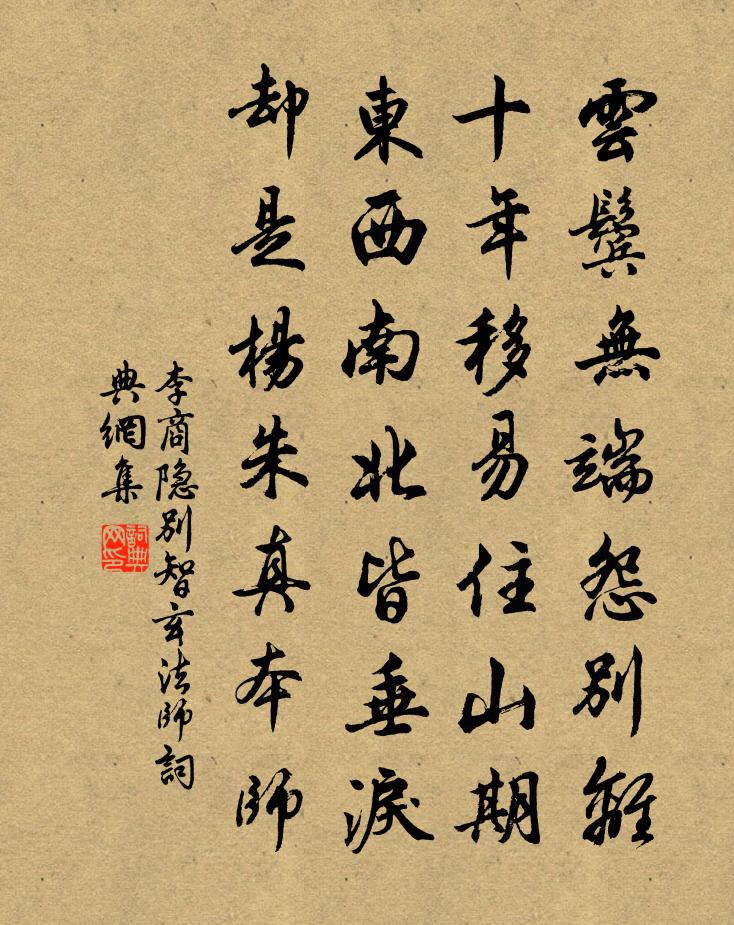 雲鬢無端怨別離
十年移易住山期
東西南北皆垂淚
却是楊朱真本師
李商隐別智玄法師詞
典網集
詞典
网印